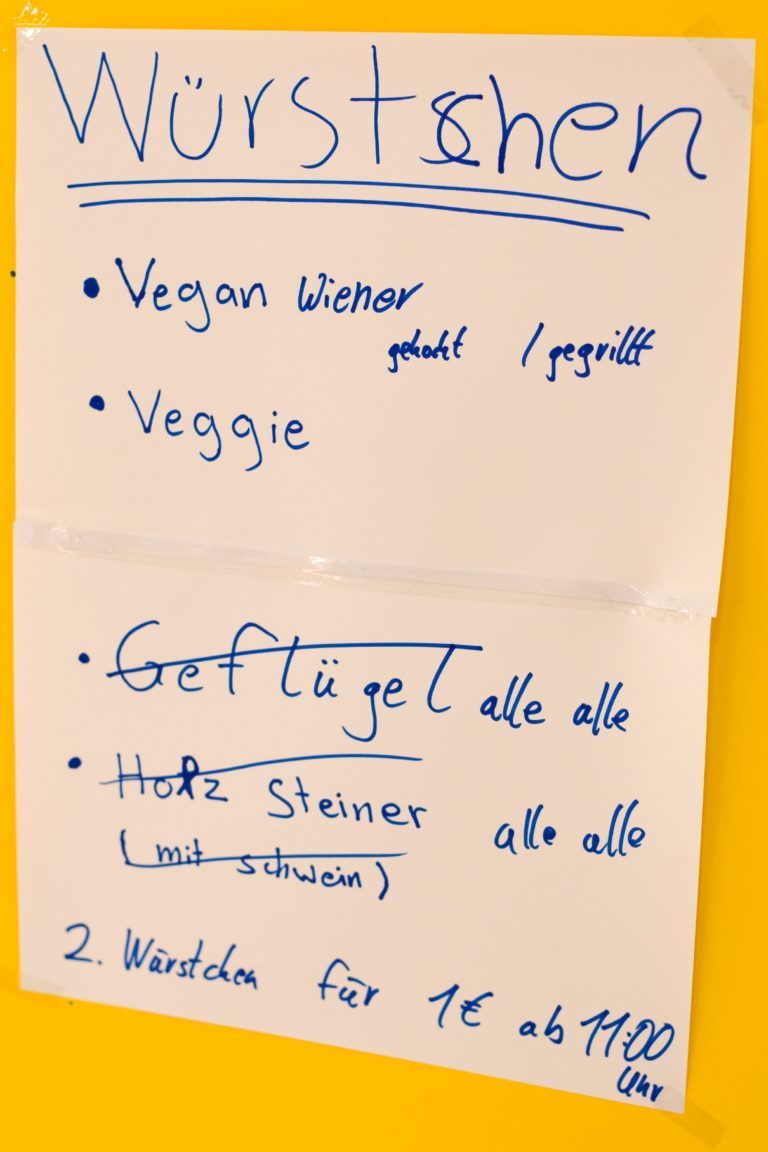 Würstchen
• Vegan Wiener
gekocht / gegrillt
• Veggie
• Geflügel alle alle
• Holz Steiner alle alle
(mit schwein)
2. Würstchen für 1€ ab 11:00
Uhr